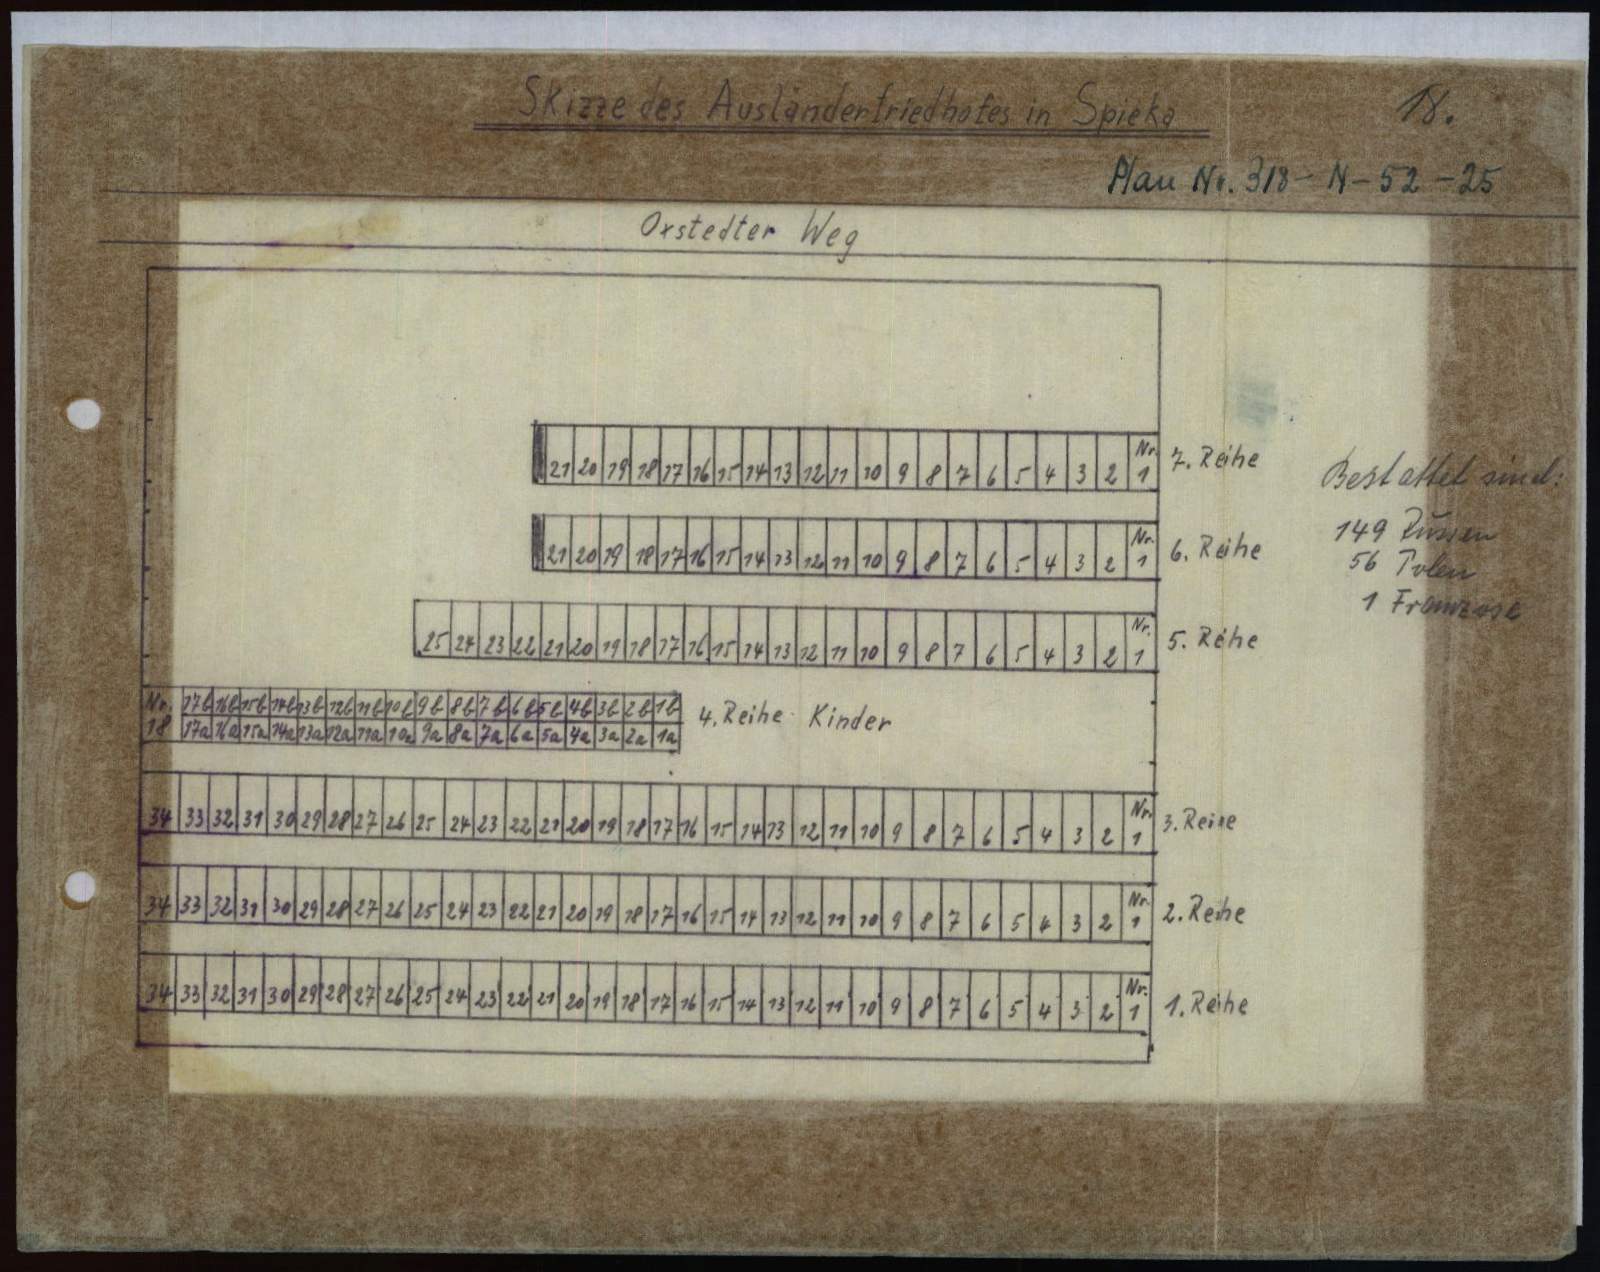 Skizze des Ausländerfriedhofes in Spieka
18.
Plan Nr. 318-N-52-25
Oxstedter Weg
21 20 19 18 17 16 15 14 13 12 11 10 9 8 7 6 5 4 3 2 Nr. 1 7. Reihe
21 20 19 18 17 16 15 14 13 12 11 10 9 8 7 6 5 4 3 2 Nr. 1 6. Reihe
25 24 23 22 21 20 19 18 17 16 15 14 13 12 11 10 9 8 7 6 5 4 3 2 Nr. 1 5. Reihe
Nr. 17b 16b 15b 14b 13b 12b 11b 10b 9b 8b 7b 6b 5b 4b 3b 2b 1b
18 17a 16a 15a 14a 13a 12a 11a 10a 9a 8a 7a 6a 5a 4a 3a 2a 1a
4. Reihe Kinder
34 33 32 31 30 29 28 27 26 25 24 23 22 21 20 19 18 17 16 15 14 13 12 11 10 9 8 7 6 5 4 3 2 Nr. 1 3. Reihe
34 33 32 31 30 29 28 27 26 25 24 23 22 21 20 19 18 17 16 15 14 13 12 11 10 9 8 7 6 5 4 3 2 Nr. 1 2. Reihe
34 33 32 31 30 29 28 27 26 25 24 23 22 21 20 19 18 17 16 15 14 13 12 11 10 9 8 7 6 5 4 3 2 Nr. 1 1. Reihe
Bestattet sind:
149 Russen
56 Polen
1 Franzose